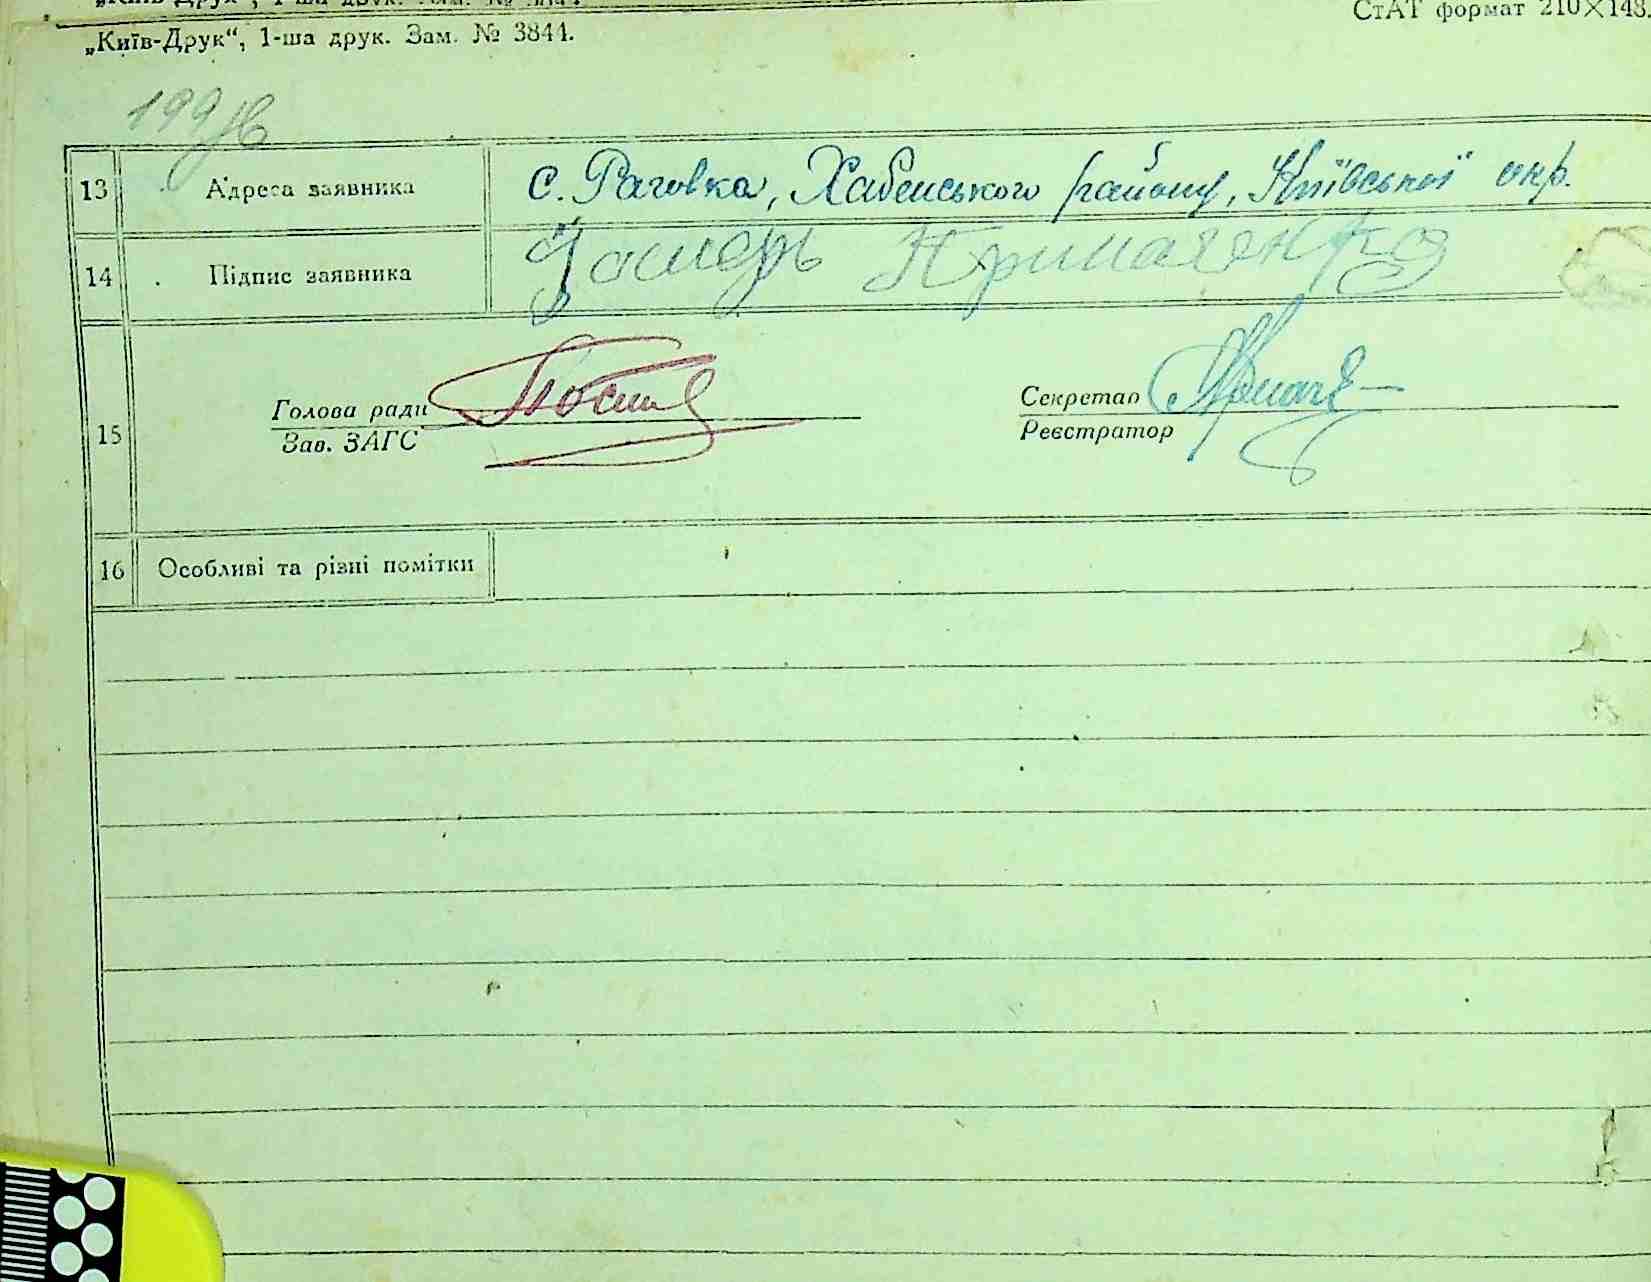 СтАТ формат 210×148.
„Київ-Друк“, 1-ша друк. Зам. № 3844.
13 Адреса заявника с. Раговка, Хабенського району, Київської окр.
14 Підпис заявника Примаченко
Голова ради Секретар
15
Зав. ЗАГС Реєстратор
16 Особливі та різні помітки